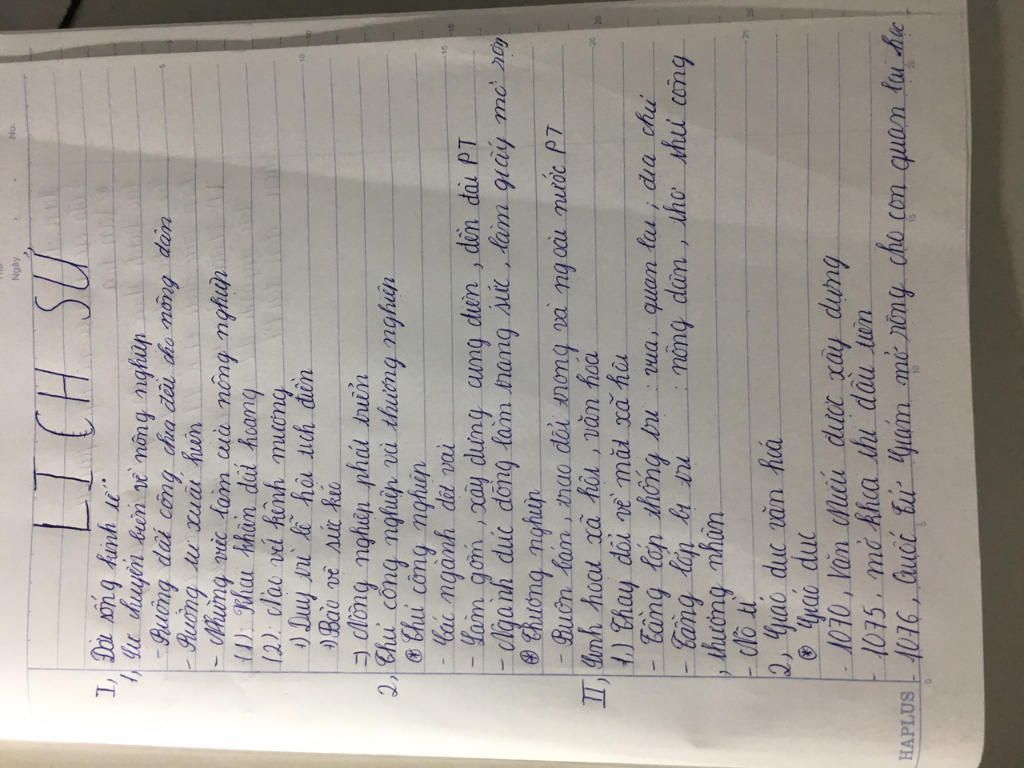 No.
Ngày
LỊCH SỬ
I, Đời sống kinh tế
1, Sự chuyển biến về nông nghiệp
- Ruộng đất công chia đều cho nông dân
- Ruộng tư xuất hiện
- Những việc làm của nông nghiệp
(1). Khai khẩn đất hoang
(2). Nạo vét kênh mương
Duy trì lễ hội tịch điền
Bảo vệ sức kéo
=) Nông nghiệp phát triển
2, Thủ công nghiệp và thương nghiệp
⊛ Thủ công nghiệp
- Các ngành dệt vải
- Làm gốm, xây dựng cung điện, đền đài PT
- Ngành đúc đồng làm trang sức, làm giấy mở rộng
⊛ Thương nghiệp
- Buôn bán, trao đổi trong và ngoài nước PT
II, Sinh hoạt xã hội, văn hoá
1) Thay đổi về mặt xã hội
- Tầng lớp thống trị: vua, quan lại, địa chủ
- Tầng lớp bị trị: nông dân, thợ thủ công
, thương nhân
- Nô tì
2, Giáo dục văn hoá
⊛ Giáo dục
- 1070, Văn Miếu được xây dựng
- 1075, mở khoa thi đầu tiên
- 1076, Quốc Tử Giám mở rộng cho con quan lại học
HAPLUS
0 5 10 15 20
5 10 15 20 25